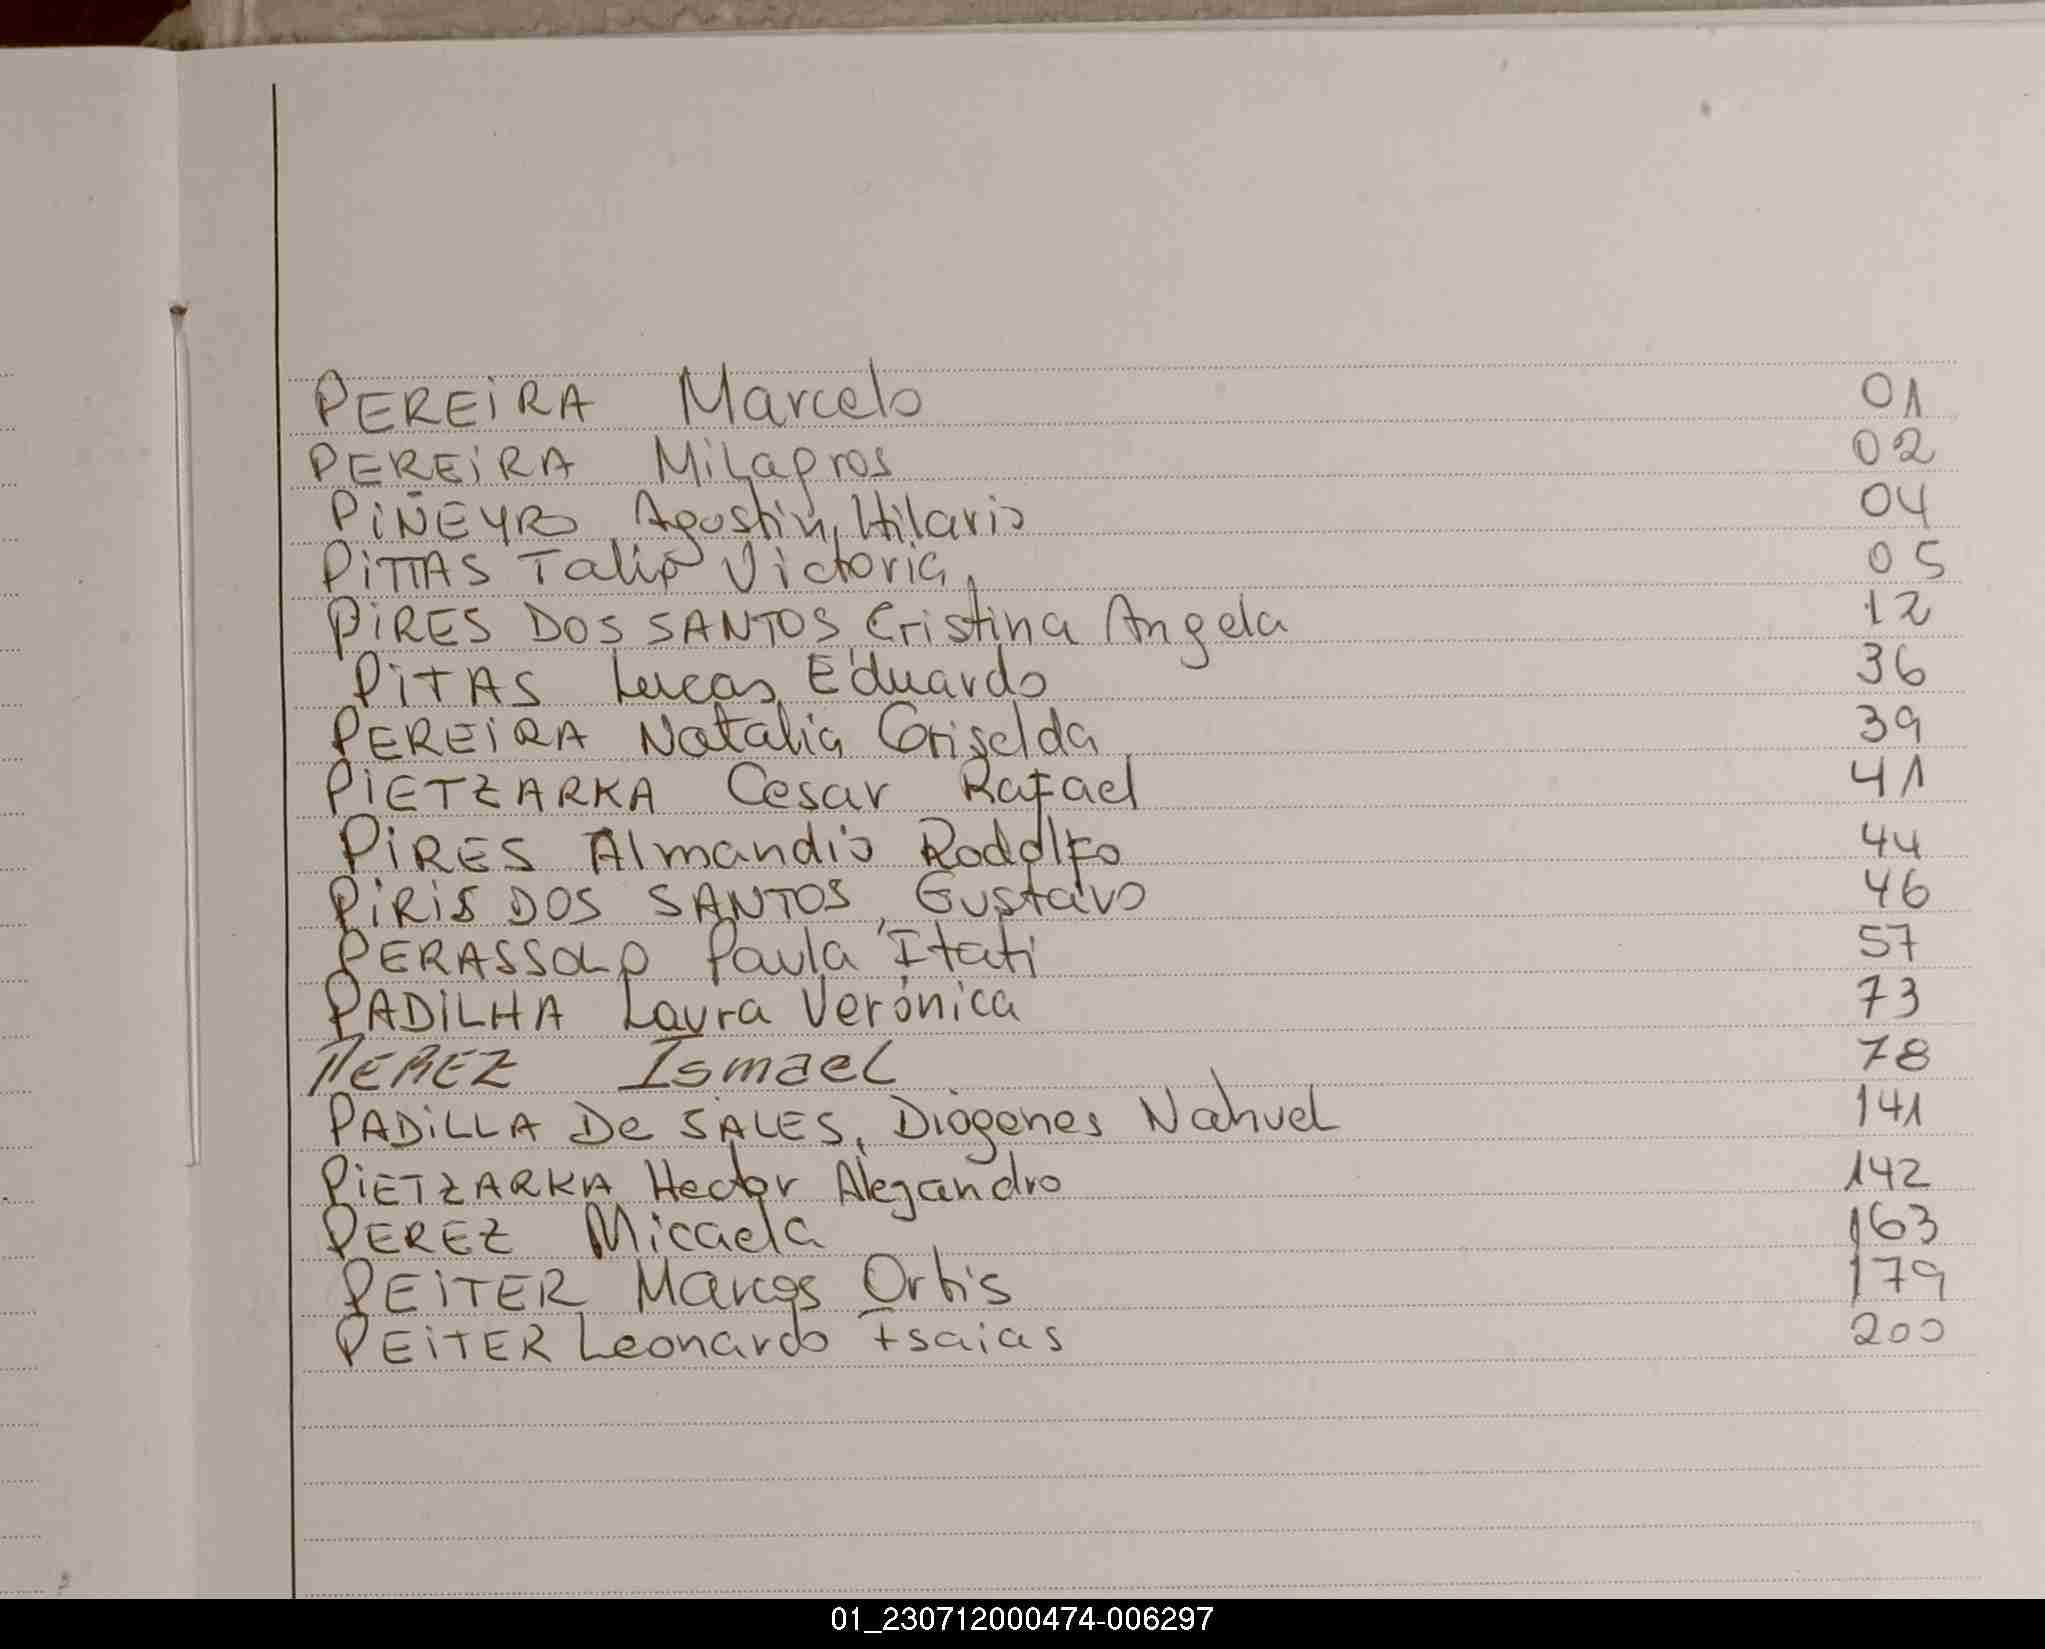 PEREIRA Marcelo 01
PEREIRA Milagros 02
PIÑEYRO Agostin, Hilario 04
PITTAS Talia Victoria 05
PIRES DOS SANTOS Cristina Angela 12
PITAS Lucas Eduardo 36
PEREIRA Natalia Griselda 39
PIETZARKA Cesar Rafael 41
PIRES Almandio Rodolfo 44
PIRIS DOS SANTOS, Gustavo 46
PERASSOLO Paula Itati 57
PADILHA Laura Verónica 73
PEREZ Ismael 78
PADILLA De SALES, Diógenes Nahuel 141
PIETZARKA Hector Alejandro 142
PEREZ Micaela 163
PEITER Marcos Ortis 179
PEITER Leonardo Isaias 200
01_230712000474-006297